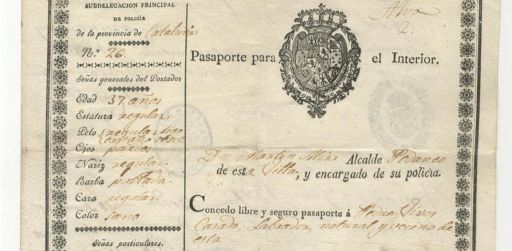 SUBDELEGACION PRINCIPAL
DE POLICÍA
de la provincia de Cataluña
N.º 26
Señas generales del Portador
Edad 37 años
Estatura regular
Pelo
Ojos pardos
Nariz regular
Barba poblada
Cara regular
Color sano
Señas particulares.
2.
Pasaporte para el Interior.
Alcalde Pedaneo
de esta Villa, y encargado de su policía.
Concedo libre y seguro pasaporte á
Casado, Labrador, natural y vecino de
esta